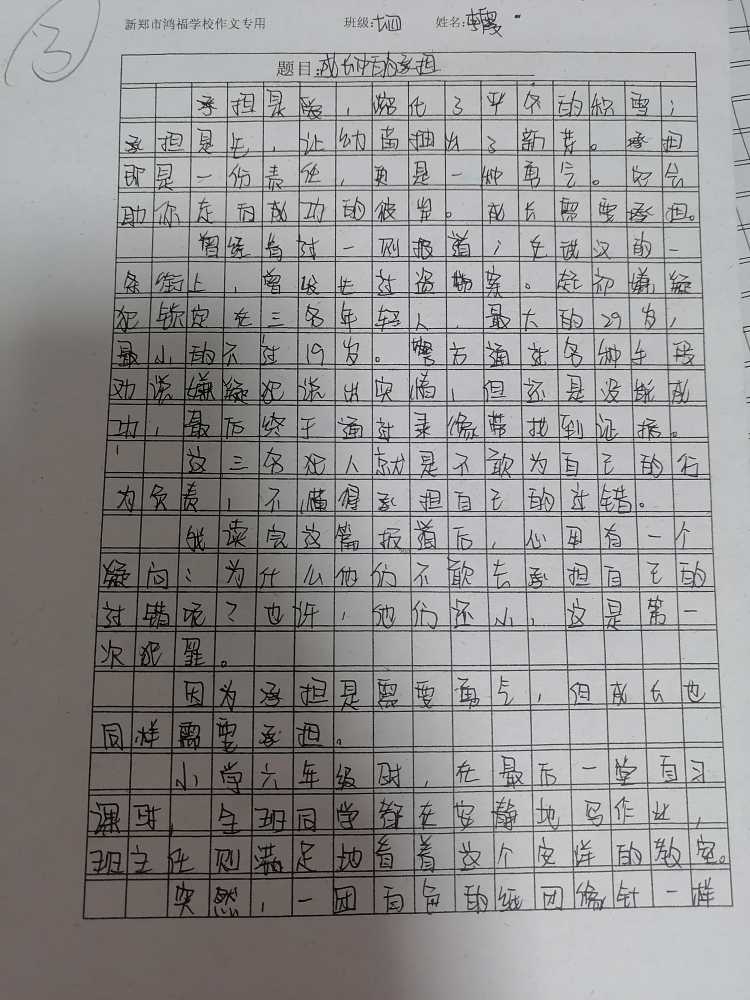 新郑市鸿福学校作文专用 班级:七四 姓名:
3
题目:成长中的承担
承担是爱,熔化了平冬的积雪;
承担是七,让幼苗抽出了新芽。承担
即是一份责任,更是一种勇气。它会
助你走向成功的彼岸。成长需要承担。
曾经看过一则报道;在武汉的一
条街上,曾发生过盗物案。起初嫌疑
犯锁定在三名年轻人,最大的29岁,
最小的不过19岁。警方通过各种手段
劝说嫌疑犯说出实情,但还是没能成
功,最后终于通过录像带找到证据。
这三名犯人就是不敢为自己的行
为负责,不懂得承担自己的过错。
我读完这篇报道后,心里有一个
疑问:为什么他们不敢去承担自己的
过错呢?也许,他们还小,这是第一
次犯罪。
因为承担是需要勇气,但成长也
同样需要承担。
小学六年级时,在最后一堂自习
课时,全班同学都在安静地写作业,
班主任则满足地看着这个安详的教室。
突然,一团白色的纸团像针一样